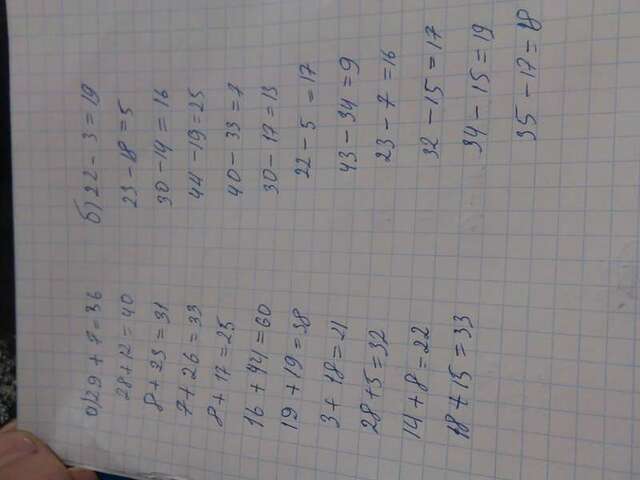 а) 29 + 7 = 36
28 + 12 = 40
8 + 23 = 31
7 + 26 = 33
8 + 17 = 25
16 + 44 = 60
19 + 19 = 38
3 + 18 = 21
28 + 5 = 32
14 + 8 = 22
18 + 15 = 33
б) 22 - 3 = 19
23 - 18 = 5
30 - 14 = 16
44 - 19 = 25
40 - 33 = 7
30 - 17 = 13
22 - 5 = 17
43 - 34 = 9
23 - 7 = 16
32 - 15 = 17
34 - 15 = 19
35 - 17 = 18